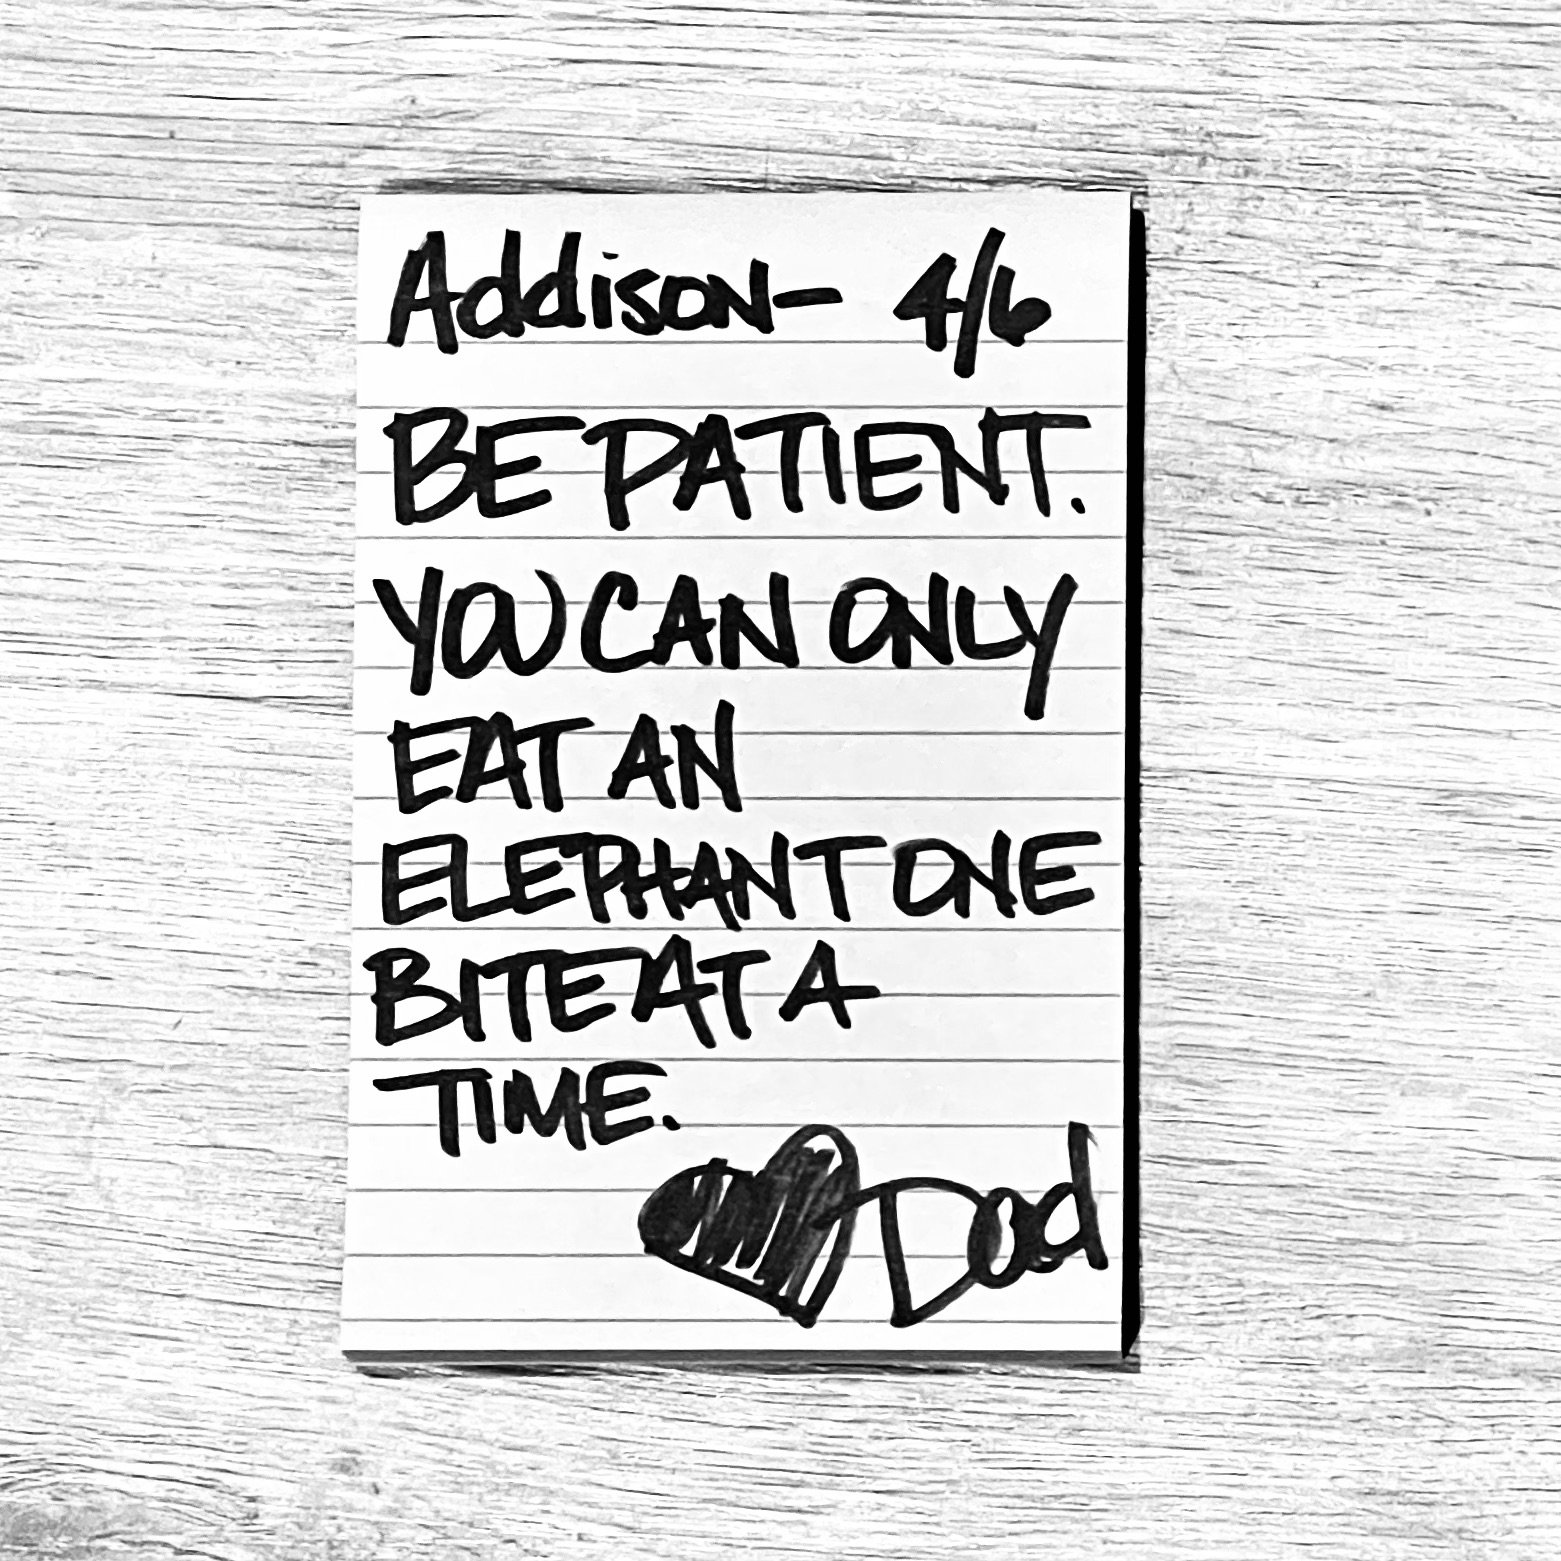 Addison- 4/6
BE PATIENT.
YOU CAN ONLY
EAT AN
ELEPHANT ONE
BITE AT A
TIME.
Dad